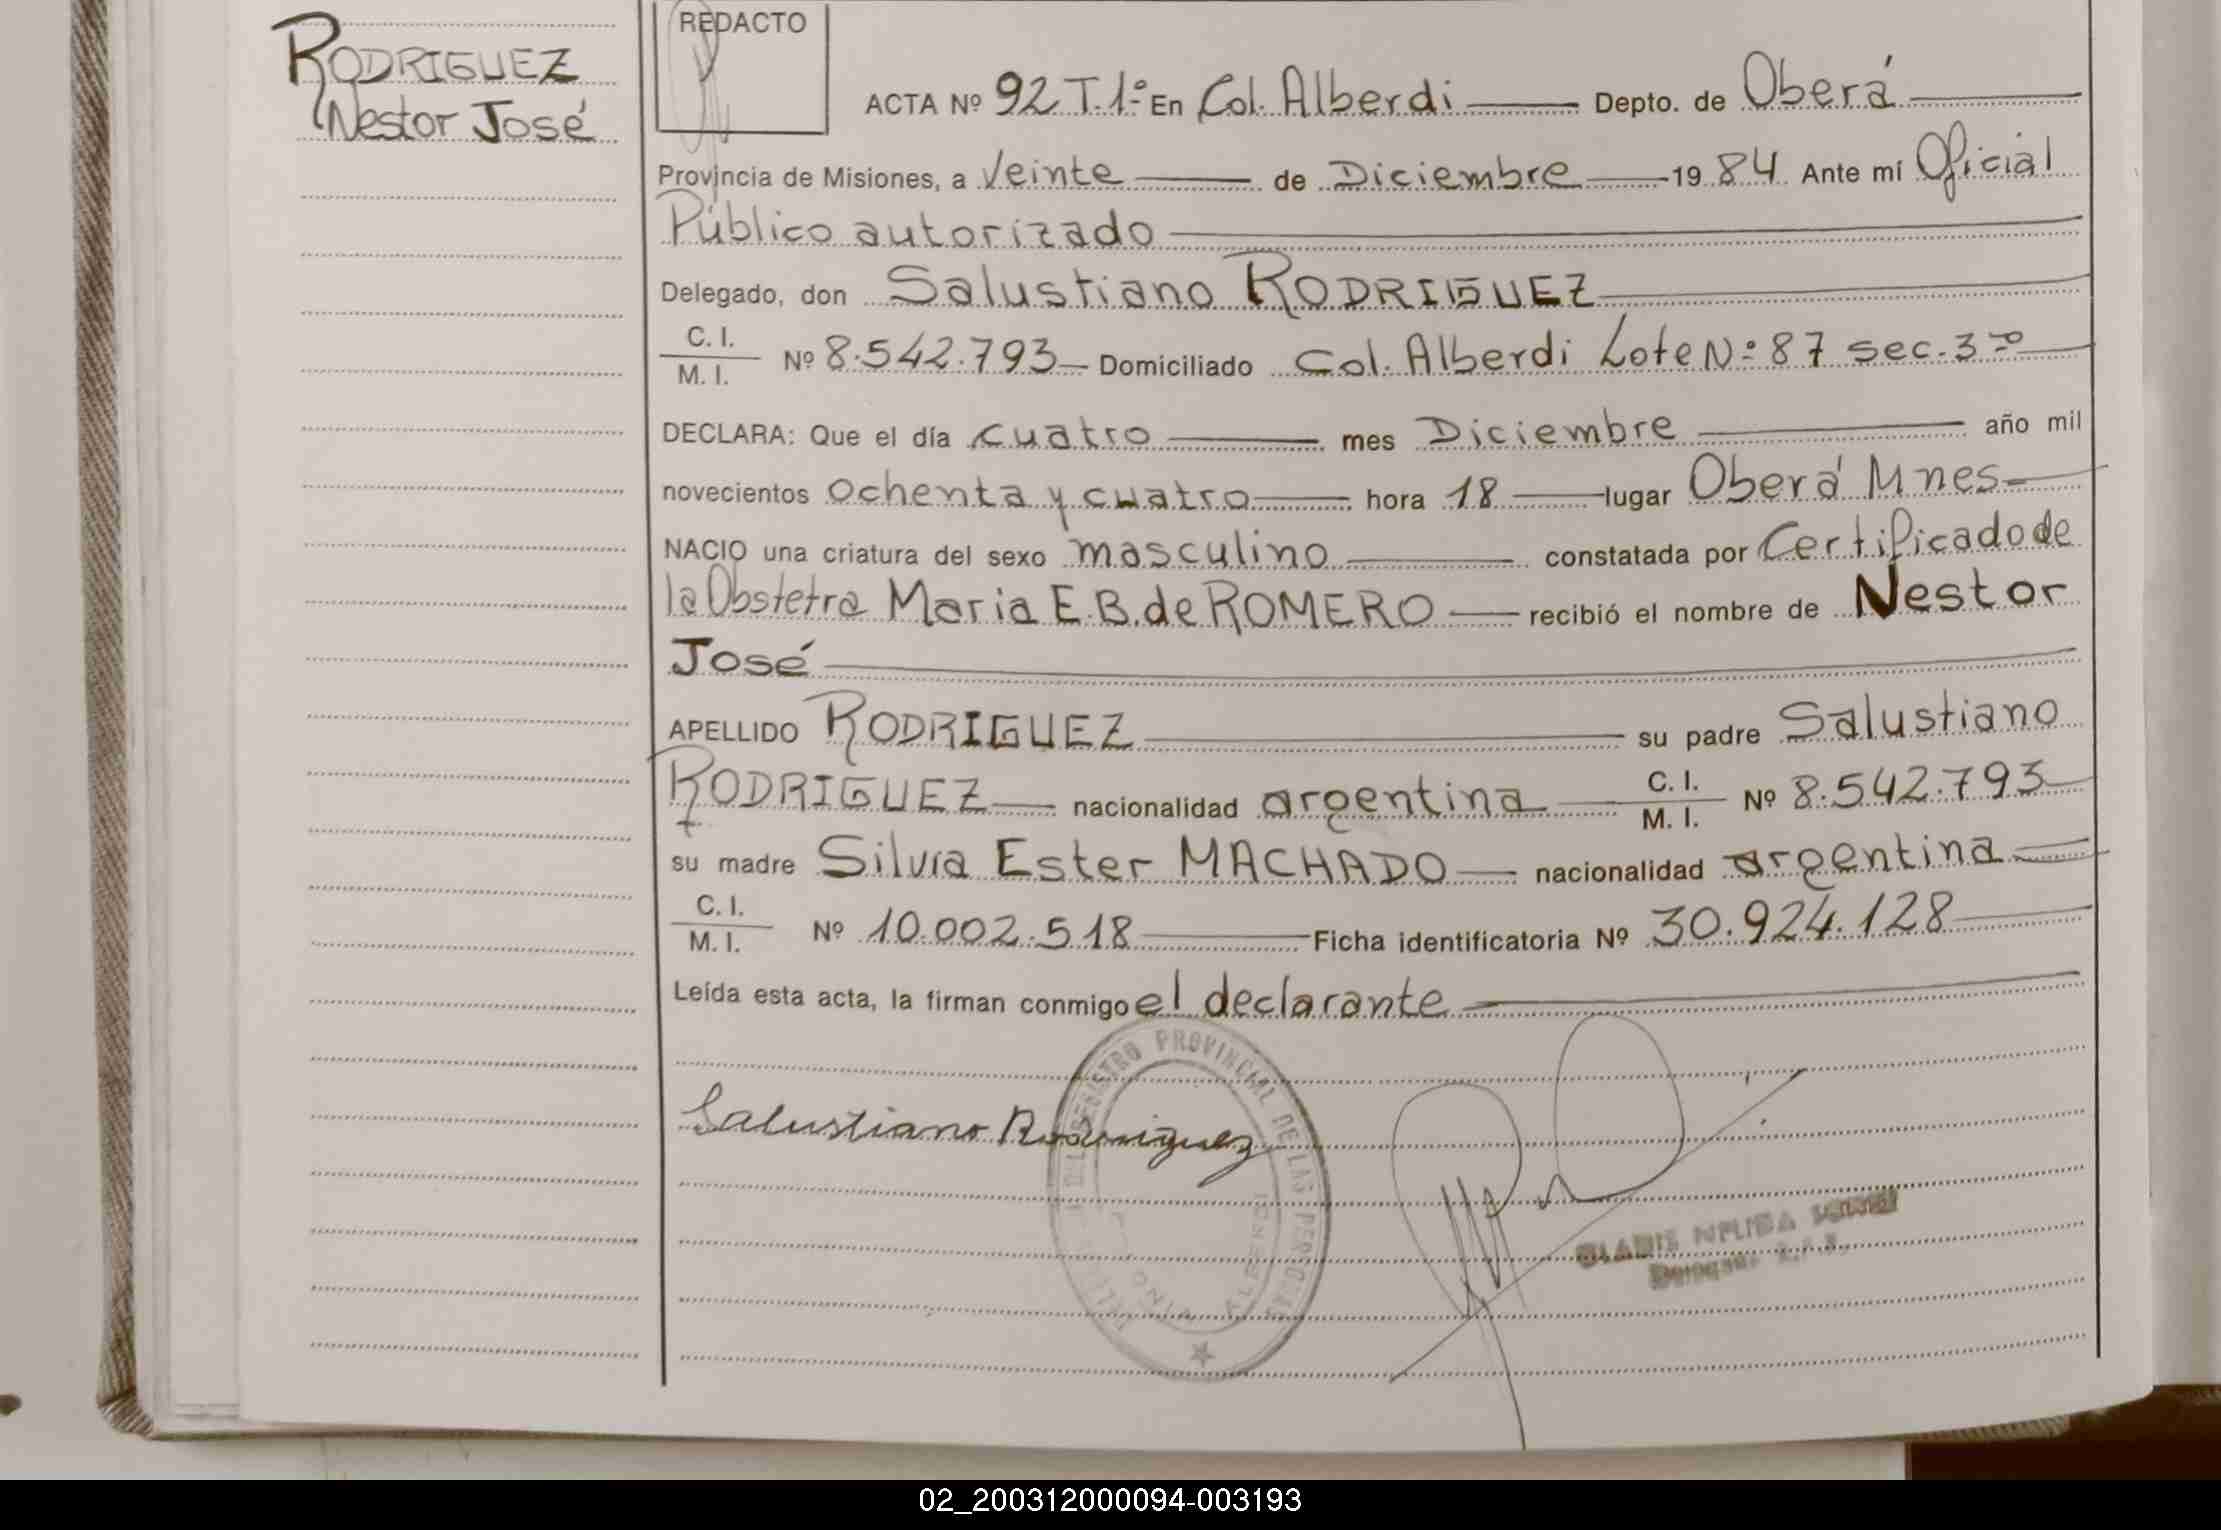 RODRIGUEZ
Nestor José
REDACTO
ACTA Nº 92 T.1º En Col. Alberdi Depto. de Oberá
Provincia de Misiones, a Veinte de Diciembre 1984 Ante mí Oficial
Público autorizado
Delegado, don Salustiano RODRIGUEZ
C. I.
M. I.
Nº 8.542.793 Domiciliado Col. Alberdi Lote Nº 87 sec. 3º
DECLARA: Que el día cuatro mes Diciembre año mil
novecientos ochenta y cuatro hora 18 lugar Oberá Mnes
NACIO una criatura del sexo masculino constatada por Certificado de
la Obstetra Maria E.B. de ROMERO recibió el nombre de Nestor
José
APELLIDO RODRIGUEZ su padre Salustiano
RODRIGUEZ nacionalidad argentina C. I. M. I. Nº 8.542.793
su madre Silvia Ester MACHADO nacionalidad argentina
C. I.
M. I.
Nº 10.002.518 Ficha identificatoria Nº 30.924.128
Leída esta acta, la firman conmigo el declarante
REGISTRO PROVINCIAL DE LAS PERSONAS
Salustiano Rodriguez
02_200312000094-003193